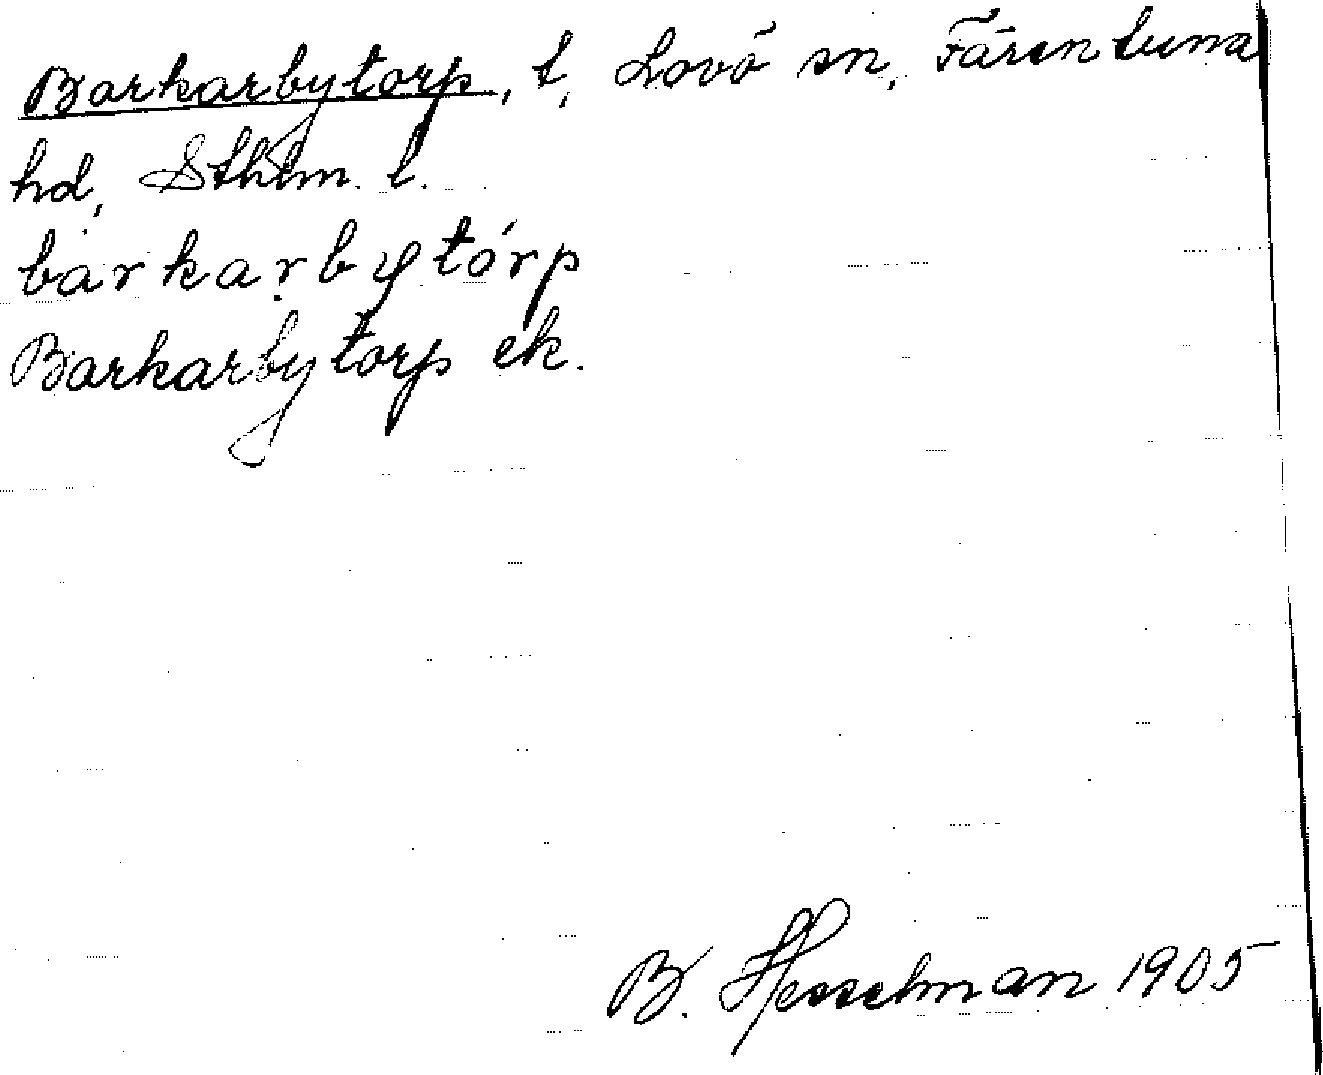 Barkarbytorp, t, Lovö sn, Färentuna
hd, Sthlm. l.
barkarbytórp
Barkarbytorp ek.
B. Hesselman 1905